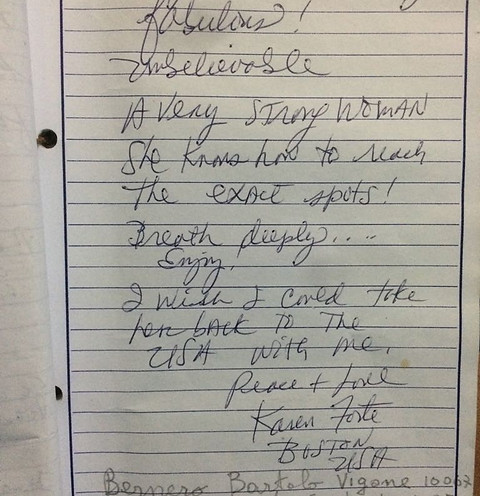 fabulous!
unbelievable
A Very Strong WOMAN
She knows how to reach
the exact spots!
Breath deeply....
Enjoy!
I wish I could take
her back to the
USA with me.
Peace + Love
Karen Forte
BOSTON
USA
Bernero Bartolo Vigone 10067